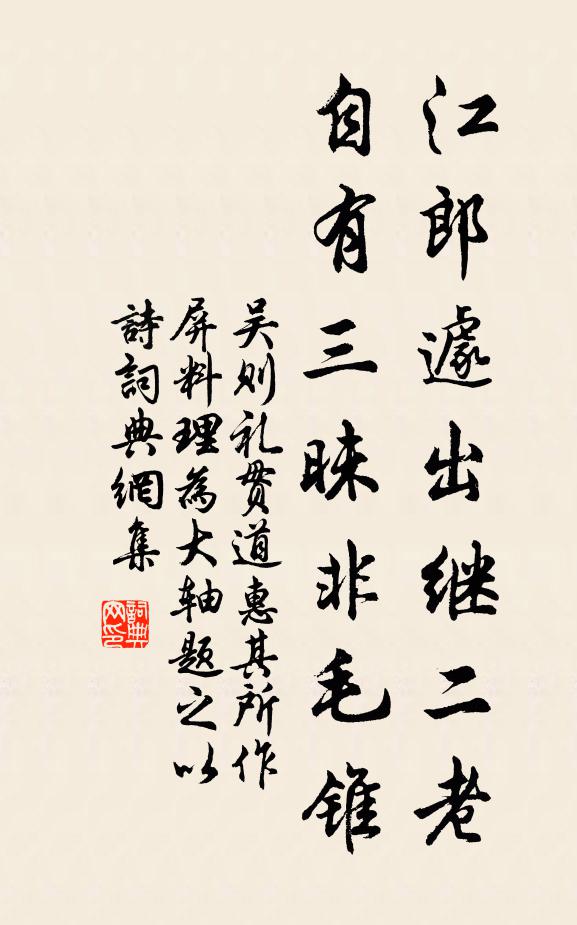 江郎遽出继二老
自有三昧非毛锥
吴则礼贯道惠其所作
屏料理為大轴题之以
詩詞典網集
詞典网印